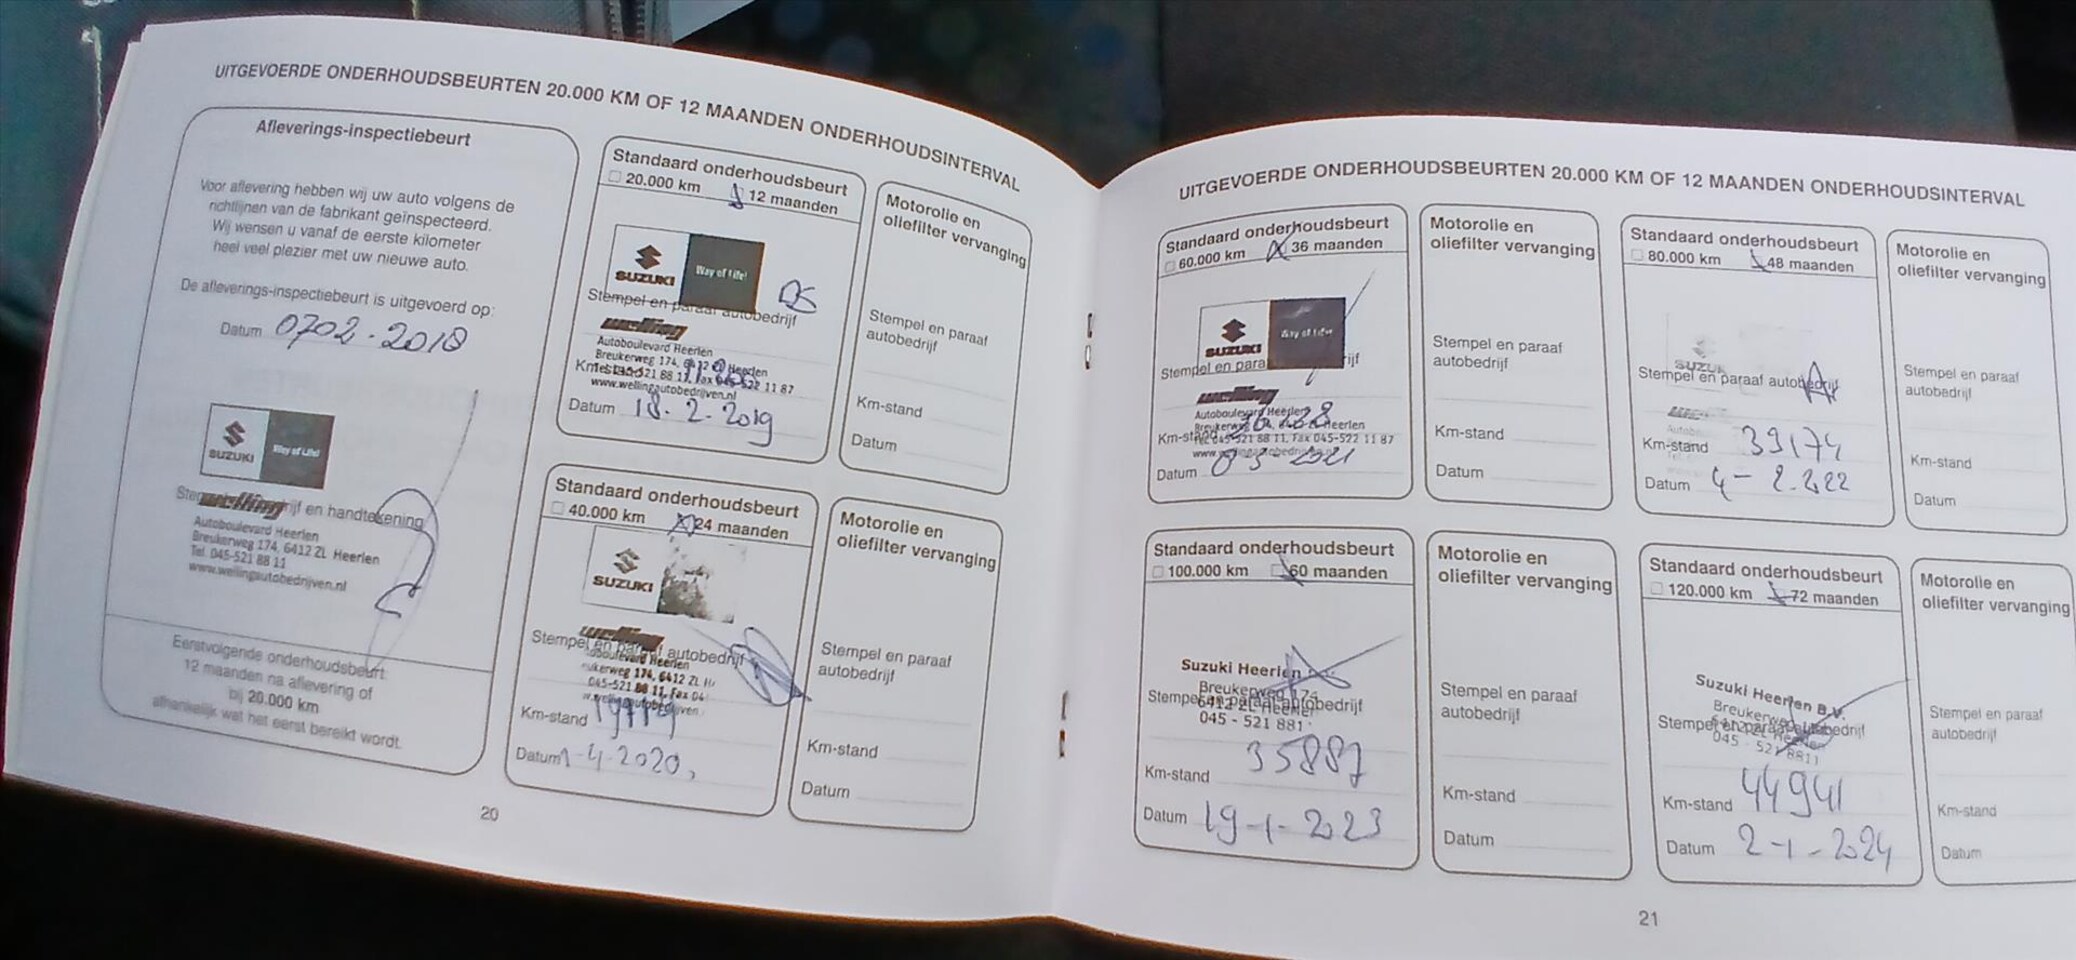 UITGEVOERDE ONDERHOUDSBEURTEN 20.000 KM OF 12 MAANDEN ONDERHOUDSINTERVAL
Afleverings-inspectiebeurt
Voor aflevering hebben wij uw auto volgens de
richtlijnen van de fabrikant geïnspecteerd.
Wij wensen u vanaf de eerste kilometer
heel veel plezier met uw nieuwe auto.
De afleverings-inspectiebeurt is uitgevoerd op:
Datum 0702-2018
SUZUKI Way of Life!
en handtekening
welling
Autoboulevard Heerlen
Breukerweg 174, 6412 ZL Heerlen
Tel. 045-521 88 11
www.wellingautobedrijven.nl
Eerstvolgende onderhoudsbeurt:
12 maanden na aflevering of
bij 20.000 km
afhankelijk wat het eerst bereikt wordt.
Standaard onderhoudsbeurt
20.000 km 12 maanden
SUZUKI Way of Life!
Stempel en paraaf autobedrijf
welling
Autoboulevard Heerlen
Breukerweg 174, Heerlen
Km-stand 521 88 11, Fax 045-522 11 87
www.wellingautobedrijven.nl
Datum 18-2-2019
Motorolie en
oliefilter vervanging
Stempel en paraaf
autobedrijf
Km-stand
Datum
Standaard onderhoudsbeurt
40.000 km 24 maanden
SUZUKI
Stempel en paraaf autobedrijf
welling
174, 6412 ZL
045-521 88 11, Fax 04
Km-stand
Datum 1-4-2020
Motorolie en
oliefilter vervanging
Stempel en paraaf
autobedrijf
Km-stand
Datum
20
UITGEVOERDE ONDERHOUDSBEURTEN 20.000 KM OF 12 MAANDEN ONDERHOUDSINTERVAL
Standaard onderhoudsbeurt
60.000 km 36 maanden
SUZUKI Way of Life!
Stempel en
welling
Autoboulevard Heerlen
Heerlen
Km-stand 045-521 88 11, Fax 045-522 11 87
Datum
Motorolie en
oliefilter vervanging
Stempel en paraaf
autobedrijf
Km-stand
Datum
Standaard onderhoudsbeurt
80.000 km 48 maanden
Stempel en paraaf autobedrijf
Km-stand 39174
Datum 4-2-2022
Motorolie en
oliefilter vervanging
Stempel en paraaf
autobedrijf
Km-stand
Datum
Standaard onderhoudsbeurt
100.000 km 60 maanden
Suzuki Heerlen
Breukerweg 174
Stempel en paraaf autobedrijf
6412 ZL Heerlen
045 - 521 881
Km-stand 35887
Datum 19-1-2023
Motorolie en
oliefilter vervanging
Stempel en paraaf
autobedrijf
Km-stand
Datum
Standaard onderhoudsbeurt
120.000 km 72 maanden
Suzuki Heerlen B.V.
Stempel en paraaf autobedrijf
045 - 521 8811
Km-stand 44941
Datum 2-1-2024
Motorolie en
oliefilter vervanging
Stempel en paraaf
autobedrijf
Km-stand
Datum
21